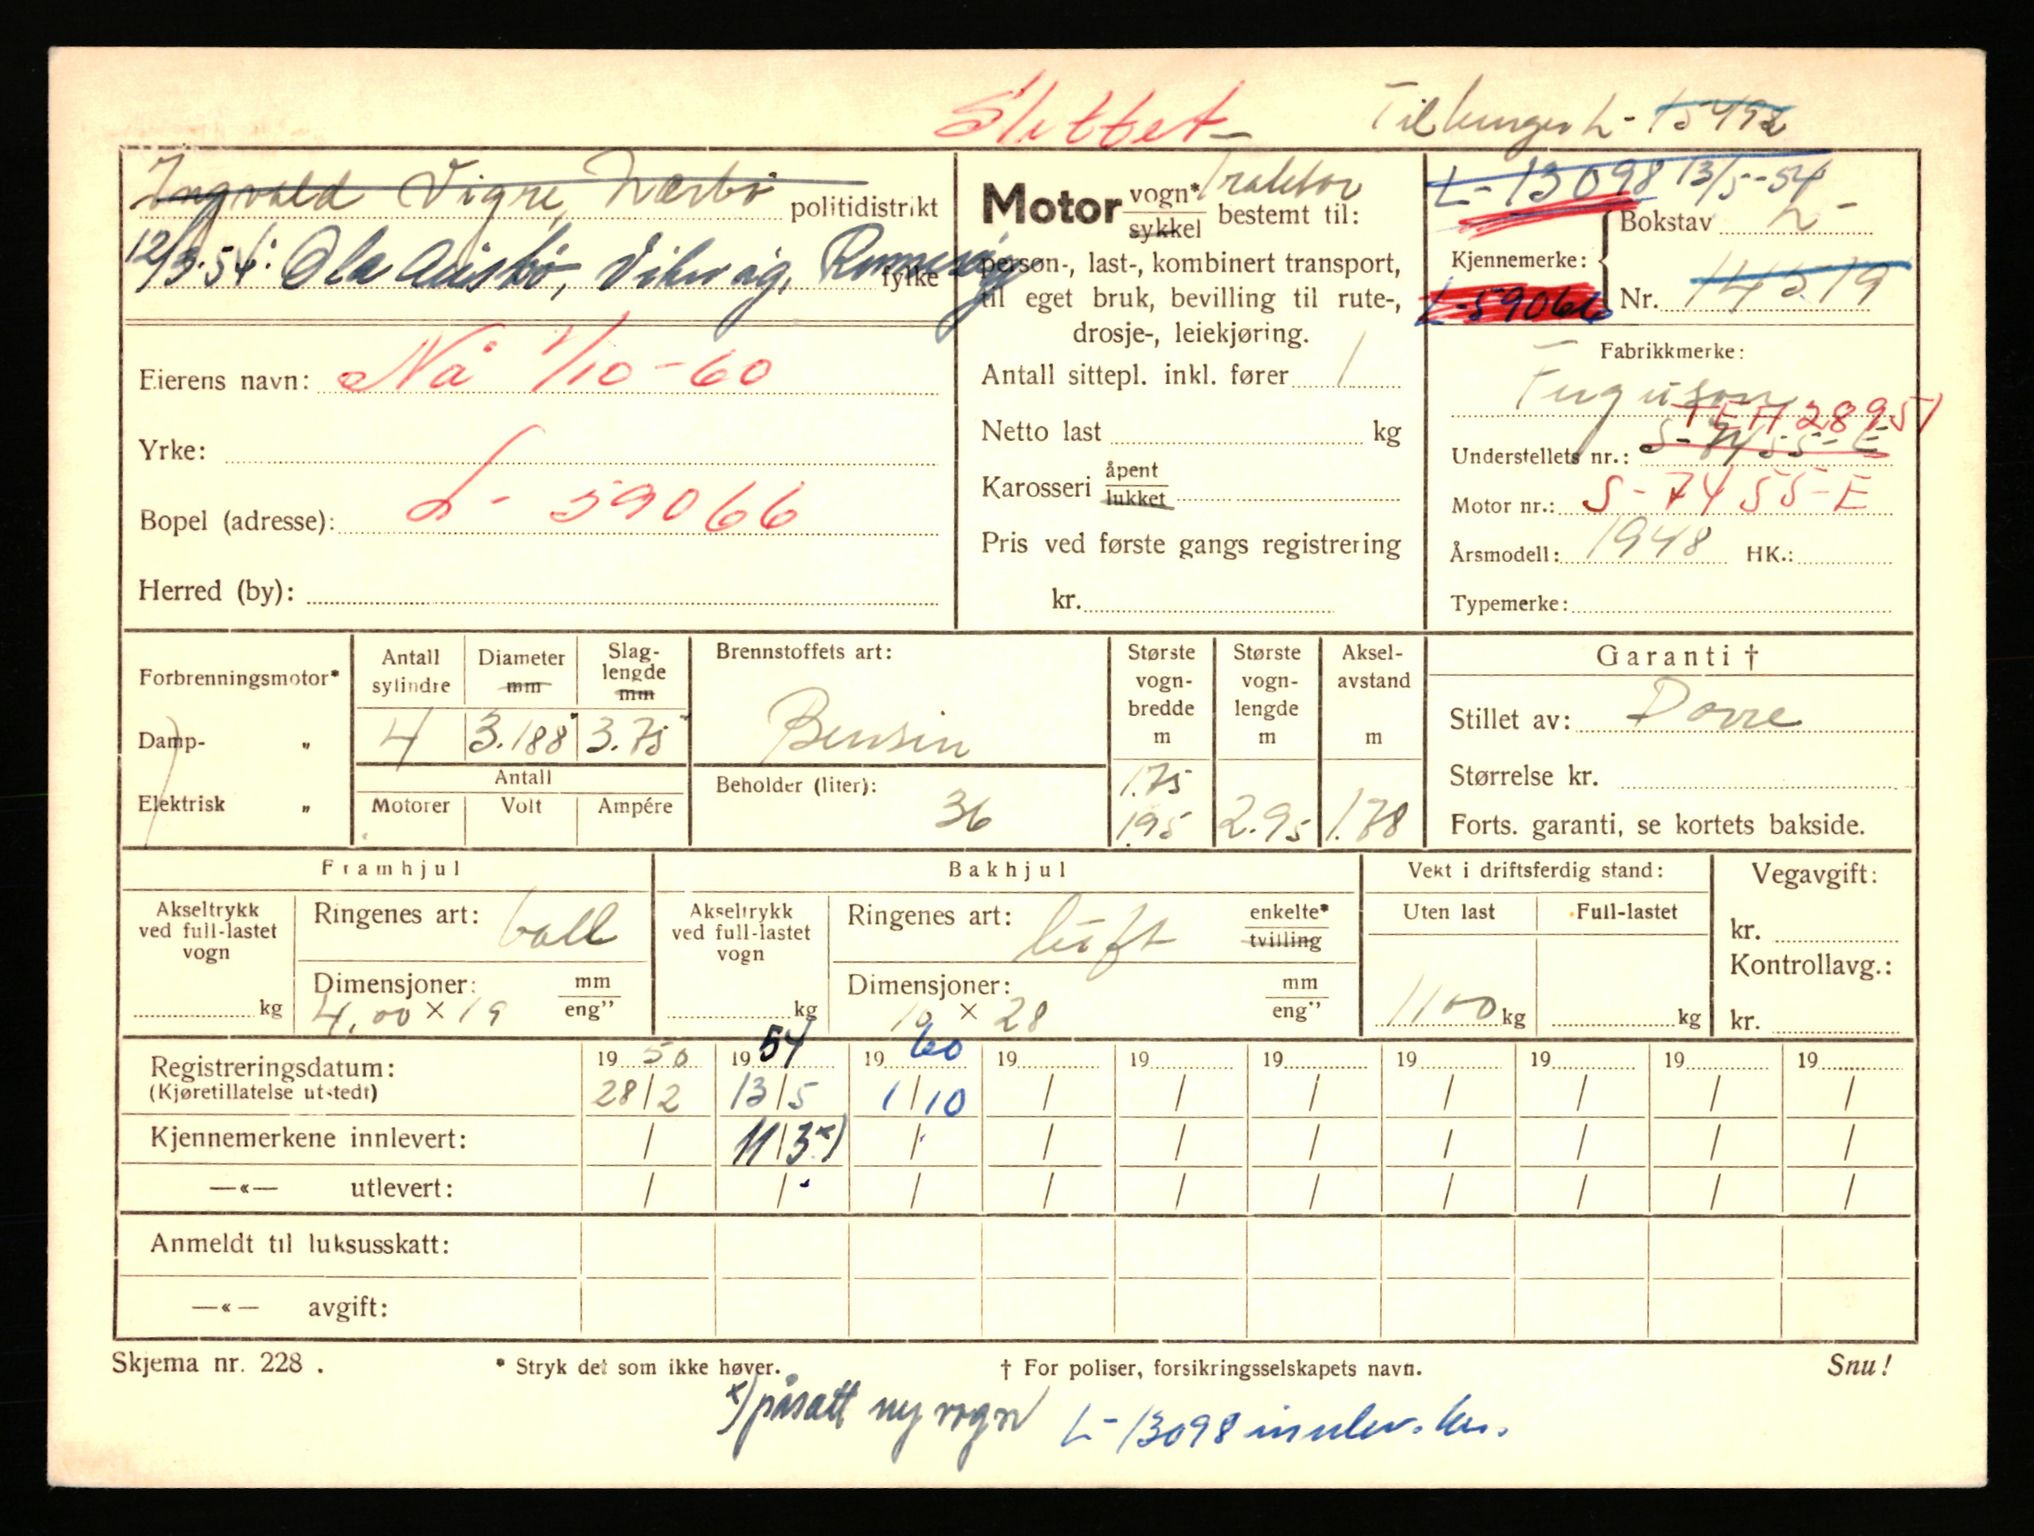 Slettet-
L-15492
Ingvald Vigre, Nærbø politidistrikt
12/3-54: Ola Aaisbø, fylke
Eierens navn: Nå 1/10-60
Yrke:
Bopel (adresse): L- 59066
Herred (by):
Motor vogn* Traktor
sykkel bestemt til:
person-, last-, kombinert transport,
til eget bruk, bevilling til rute-,
drosje-, leiekjøring.
Antall sittepl. inkl. fører 1
Netto last kg
Karosseri åpent
lukket
Pris ved første gangs registrering
kr.
L-13098 13/5-54
Bokstav L-
Kjennemerke:
L-59066 Nr. 14519
Fabrikkmerke:
Ferguson
TEA 28951
Understellets nr.: S-7455-E
Motor nr.: S-7455-E
Årsmodell: 1948 HK.:
Typemerke:
Forbrenningsmotor*
Damp- „
Elektrisk „
Antall sylindre
Diameter mm
Slag-lengde mm
4 3.188" 3.75"
Antall
Motorer Volt Ampére
Brennstoffets art:
Bensin
Beholder (liter):
36
Største vogn-bredde m
1.75
1.95
Største vogn-lengde m
2.95
Aksel-avstand m
1.78
Garanti †
Stillet av: Dovre
Størrelse kr.
Forts. garanti, se kortets bakside.
Framhjul
Akseltrykk ved full-lastet vogn
kg
Ringenes art: ball
Dimensjoner: mm
4.00 × 19 eng”
Bakhjul
Akseltrykk ved full-lastet vogn
kg
Ringenes art: luft enkelte*
tvilling
Dimensjoner: mm
10 × 28 eng”
Vekt i driftsferdig stand:
Uten last Full-lastet
1100 kg kg
Vegavgift:
kr.
Kontrollavg.:
kr.
Registreringsdatum: 19 50 19 54 19 60 19 19 19 19 19 19 19
(Kjøretillatelse utstedt) 28/2 13/5 1/10 / / / / / / /
Kjennemerkene innlevert: / 11/3 x) / / / / / / / /
—«— utlevert: / / / / / / / / / /
Anmeldt til luksusskatt:
—«— avgift:
Skjema nr. 228 . * Stryk det som ikke høver. † For poliser, forsikringsselskapets navn. Snu!
x) påsatt ny vogn L-13098 innlev.